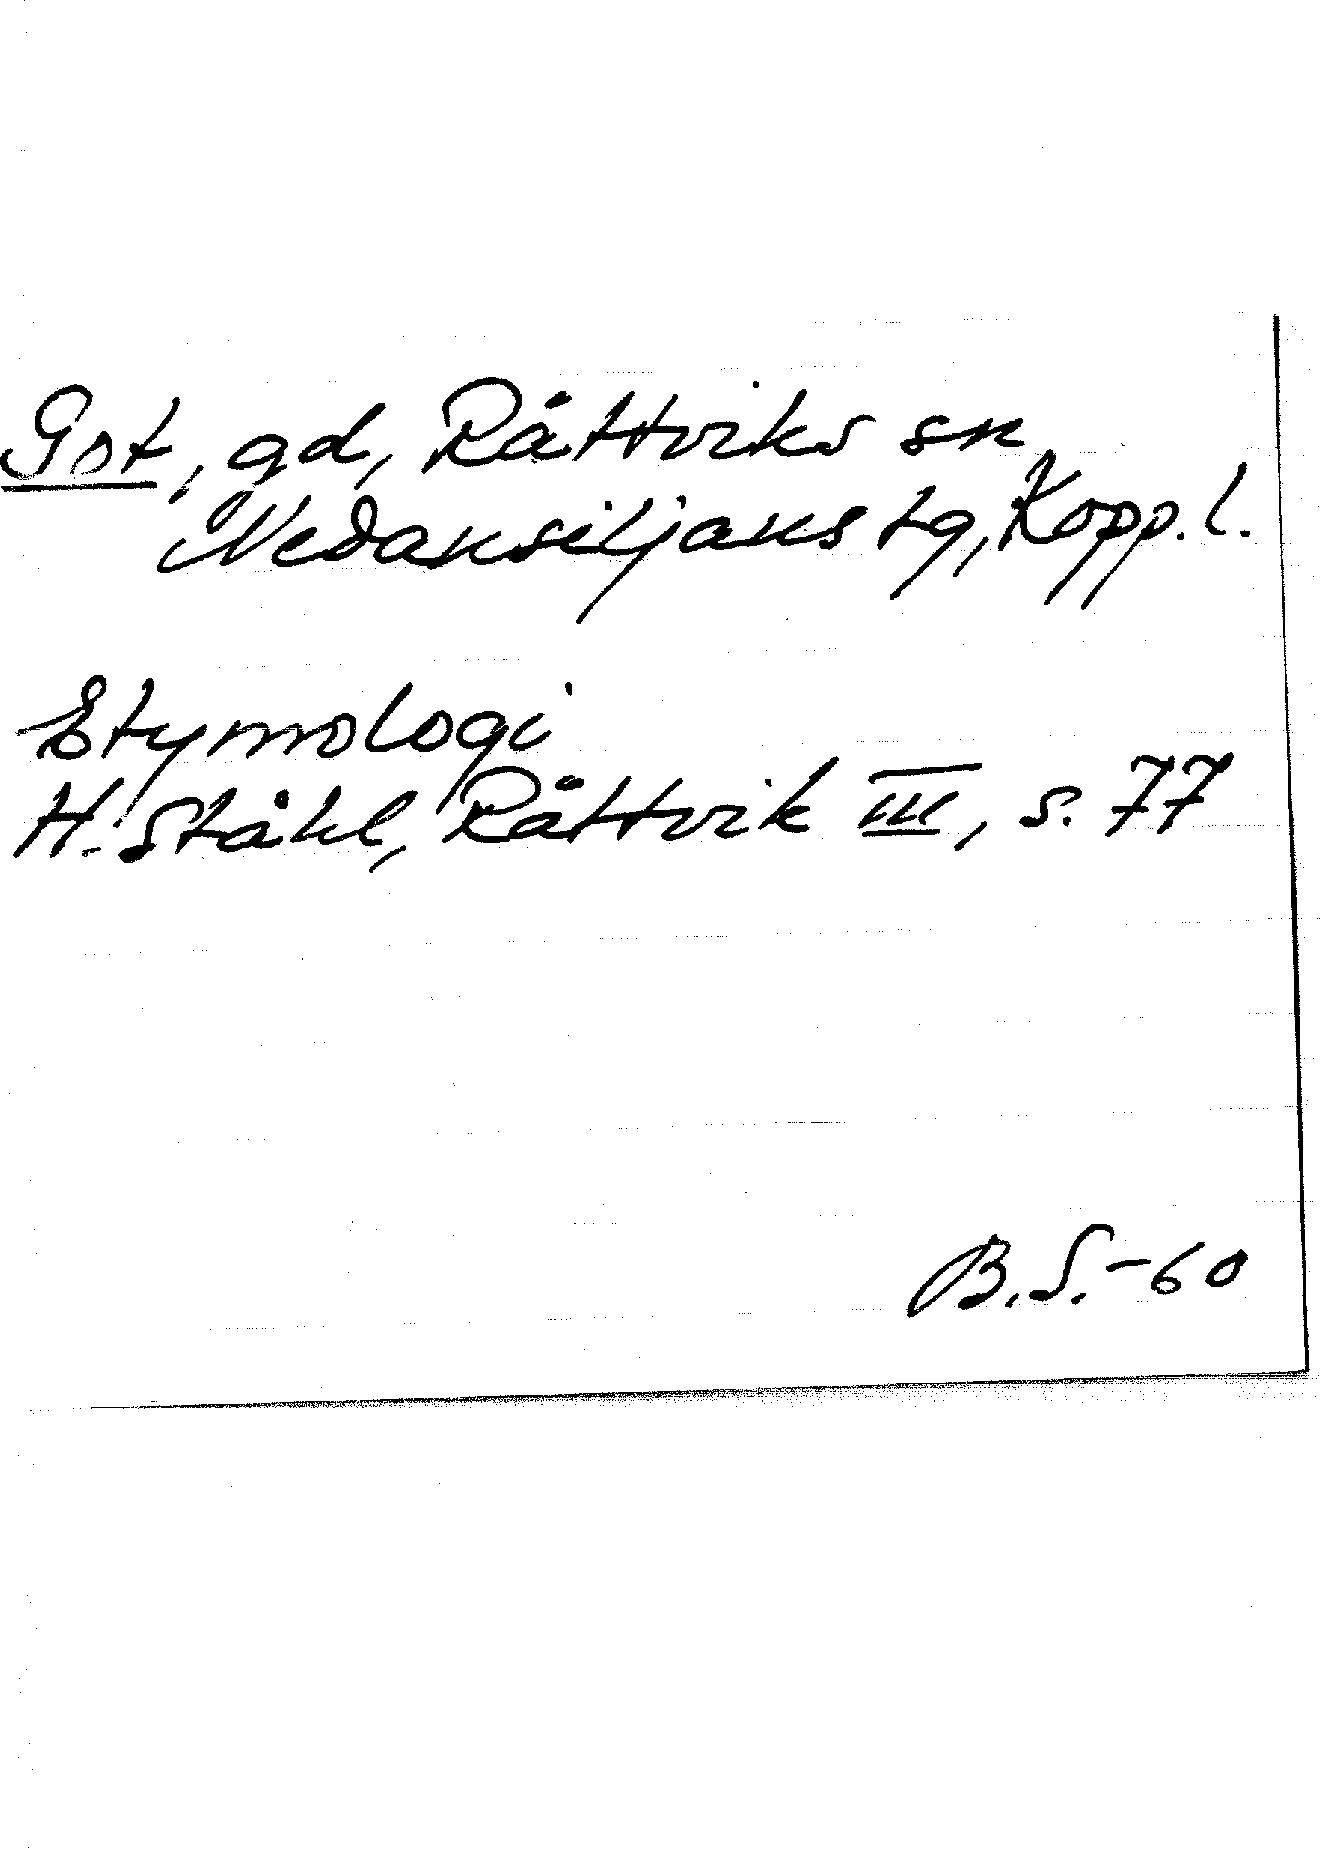 Got, gd, Rättviks sn,
Nedansiljans tg, Kopp. l.
Etymologi
H. Ståhl, Rättvik III, s. 77
B.S. -60